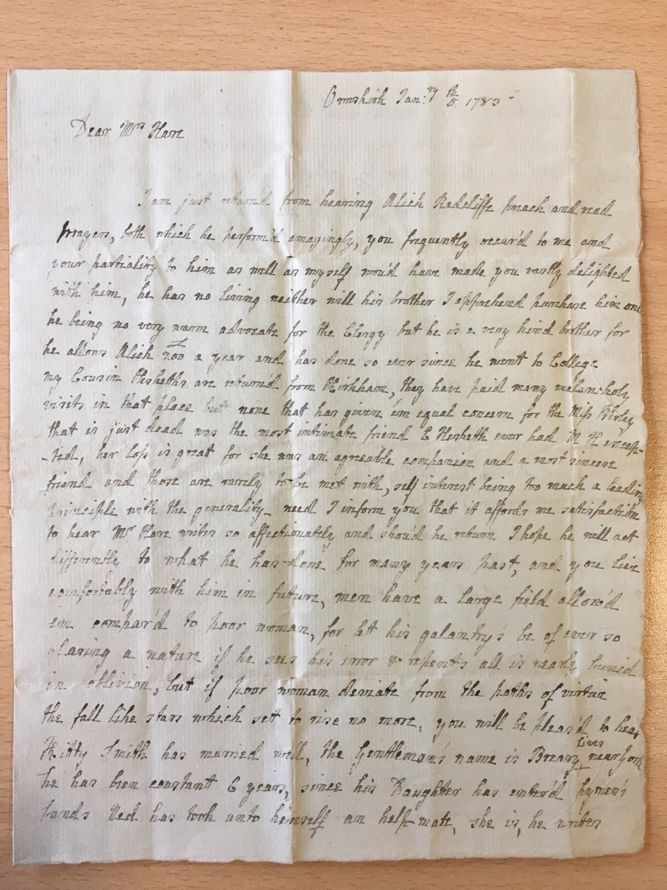 Ormskirk Jan:ry 5th 1783
Dear Mrs Hare
I am just return'd from hearing Alich Radcliffe preach and read
Prayers, both which he perform'd amazingly, you frequently occur'd to me and
your partiality to him as well as myself wou'd have made you vastly delighted
with him, he has no living neither will his brother I apprehend purchase him one
he being no very warm advocate for the Clergy but he is a very kind brother for
he allows Alich a year and has done so ever since he went to College
my Cousin Hesketh's are return'd from Kirkham, they have paid many melancholy
visits in that place but none that has given 'em equal concern for the Miss
that is just dead was the most intimate friend E Hesketh ever had M H excep-
-ted, her loss is great for she was an agreable companion and a most sincere
friend and those are rarely to be met with, self interest being too much a leading
Principle with the generality - need I inform you that it affords me satisfaction
to hear Mr Hare writes so affectionately and shou'd he return I hope he will act
differently to what he has done for many years past, and you live
comfortably with him in future, men have a large field allow'd
em compar'd to poor woman, for let his galantry's be of ever so
glaring a nature if he sees his error & repents all is nearly buried
in oblivion, but if poor woman deviate from the paths of virtue
the fall like stars which set to rise no more, you will be pleas'd to hear
Kitty Smith has married well, the Gentleman's name is Breary lives near
he has been constant 6 years, since his Daughter has enter'd hymen's
bands Ned has took unto himself an help-mate, she is, he writes